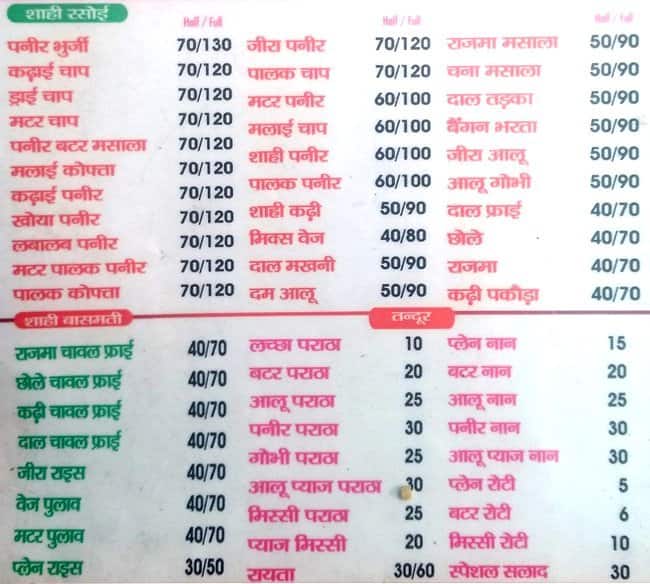 शाही रसोई
Half / Full
पनीर भुर्जी 70/130
कढ़ाई चाप 70/120
ड्राई चाप 70/120
मटर चाप 70/120
पनीर बटर मसाला 70/120
मलाई कोफ्ता 70/120
कढ़ाई पनीर 70/120
खोया पनीर 70/120
लबालब पनीर 70/120
मटर पालक पनीर 70/120
पालक कोफ्ता 70/120
Half / Full
जीरा पनीर 70/120
पालक चाप 70/120
मटर पनीर 60/100
मलाई चाप 60/100
शाही पनीर 60/100
पालक पनीर 60/100
शाही कढ़ी 50/90
मिक्स वेज 40/80
दाल मखनी 50/90
दम आलू 50/90
Half / Full
राजमा मसाला 50/90
चना मसाला 50/90
दाल तड़का 50/90
बैंगन भरता 50/90
जीरा आलू 50/90
आलू गोभी 50/90
दाल फ्राई 40/70
छोले 40/70
राजमा 40/70
कढ़ी पकौड़ा 40/70
शाही बासमती
राजमा चावल फ्राई 40/70
छोले चावल फ्राई 40/70
कढ़ी चावल फ्राई 40/70
दाल चावल फ्राई 40/70
जीरा राइस 40/70
वेज पुलाव 40/70
मटर पुलाव 40/70
प्लेन राइस 30/50
तन्दूर
लच्छा पराठा 10
बटर पराठा 20
आलू पराठा 25
पनीर पराठा 30
गोभी पराठा 25
आलू प्याज पराठा 30
मिस्सी पराठा 25
प्याज मिस्सी 20
रायता 30/60
प्लेन नान 15
बटर नान 20
आलू नान 25
पनीर नान 30
आलू प्याज नान 30
प्लेन रोटी 5
बटर रोटी 6
मिस्सी रोटी 10
स्पेशल सलाद 30